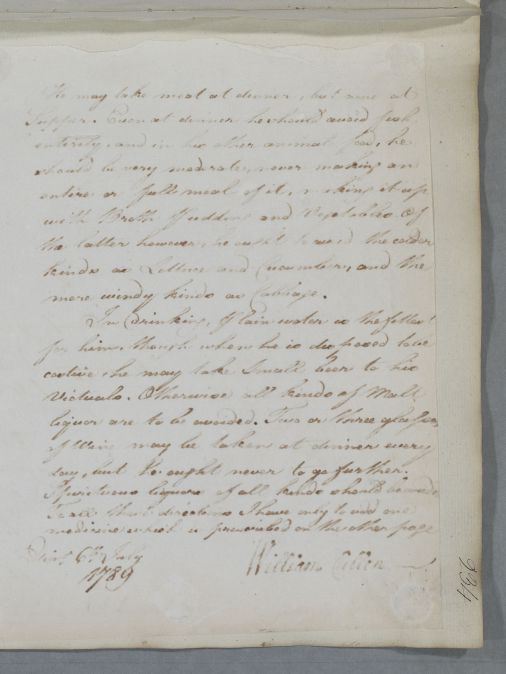 He may take meat at dinner, but none at
Supper. Even at dinner he should avoid fish
entirely, and in his other animal food, he
should be very moderate, never making an
entire or full meal of it, making it up
with Broth Pudding and Vegetables. Of
the latter however, he ought to avoid the colder
kinds as Lettuce and Cucumber, and the
more windy kinds as Cabbage.
In Drinking, Plain water is the fittest
for him, though when he is disposed to be
costive, he may take Small beer to his
Victuals. Otherwise all kinds of Malt
liquor are to be avoided. Two or three glasses
of Wine may be taken at dinner every
day, but he ought never to go further.
Spirituous liquors of all kinds should be
To all these directions I have only to add one
medicine which is prescribed on the other page
Edinr. 6th July
1789 William Cullen
234